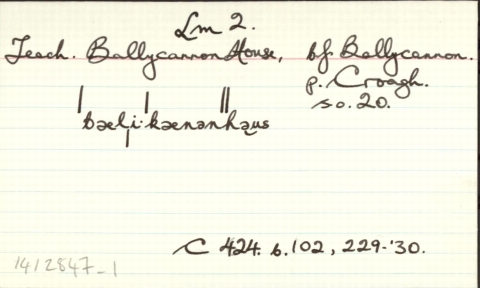 Lm 2.
Teach. Ballycannon House, bf. Ballycannon.
p. Croagh.
so. 20.
bæli:kænənhaus
C 424. b. 102, 229-'30.
1412847_1